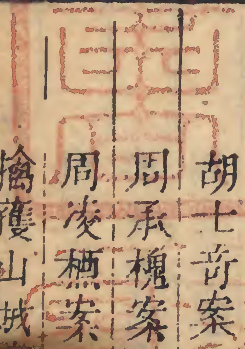 胡士奇案
周承槐案
周凌栖案
擒獲山城